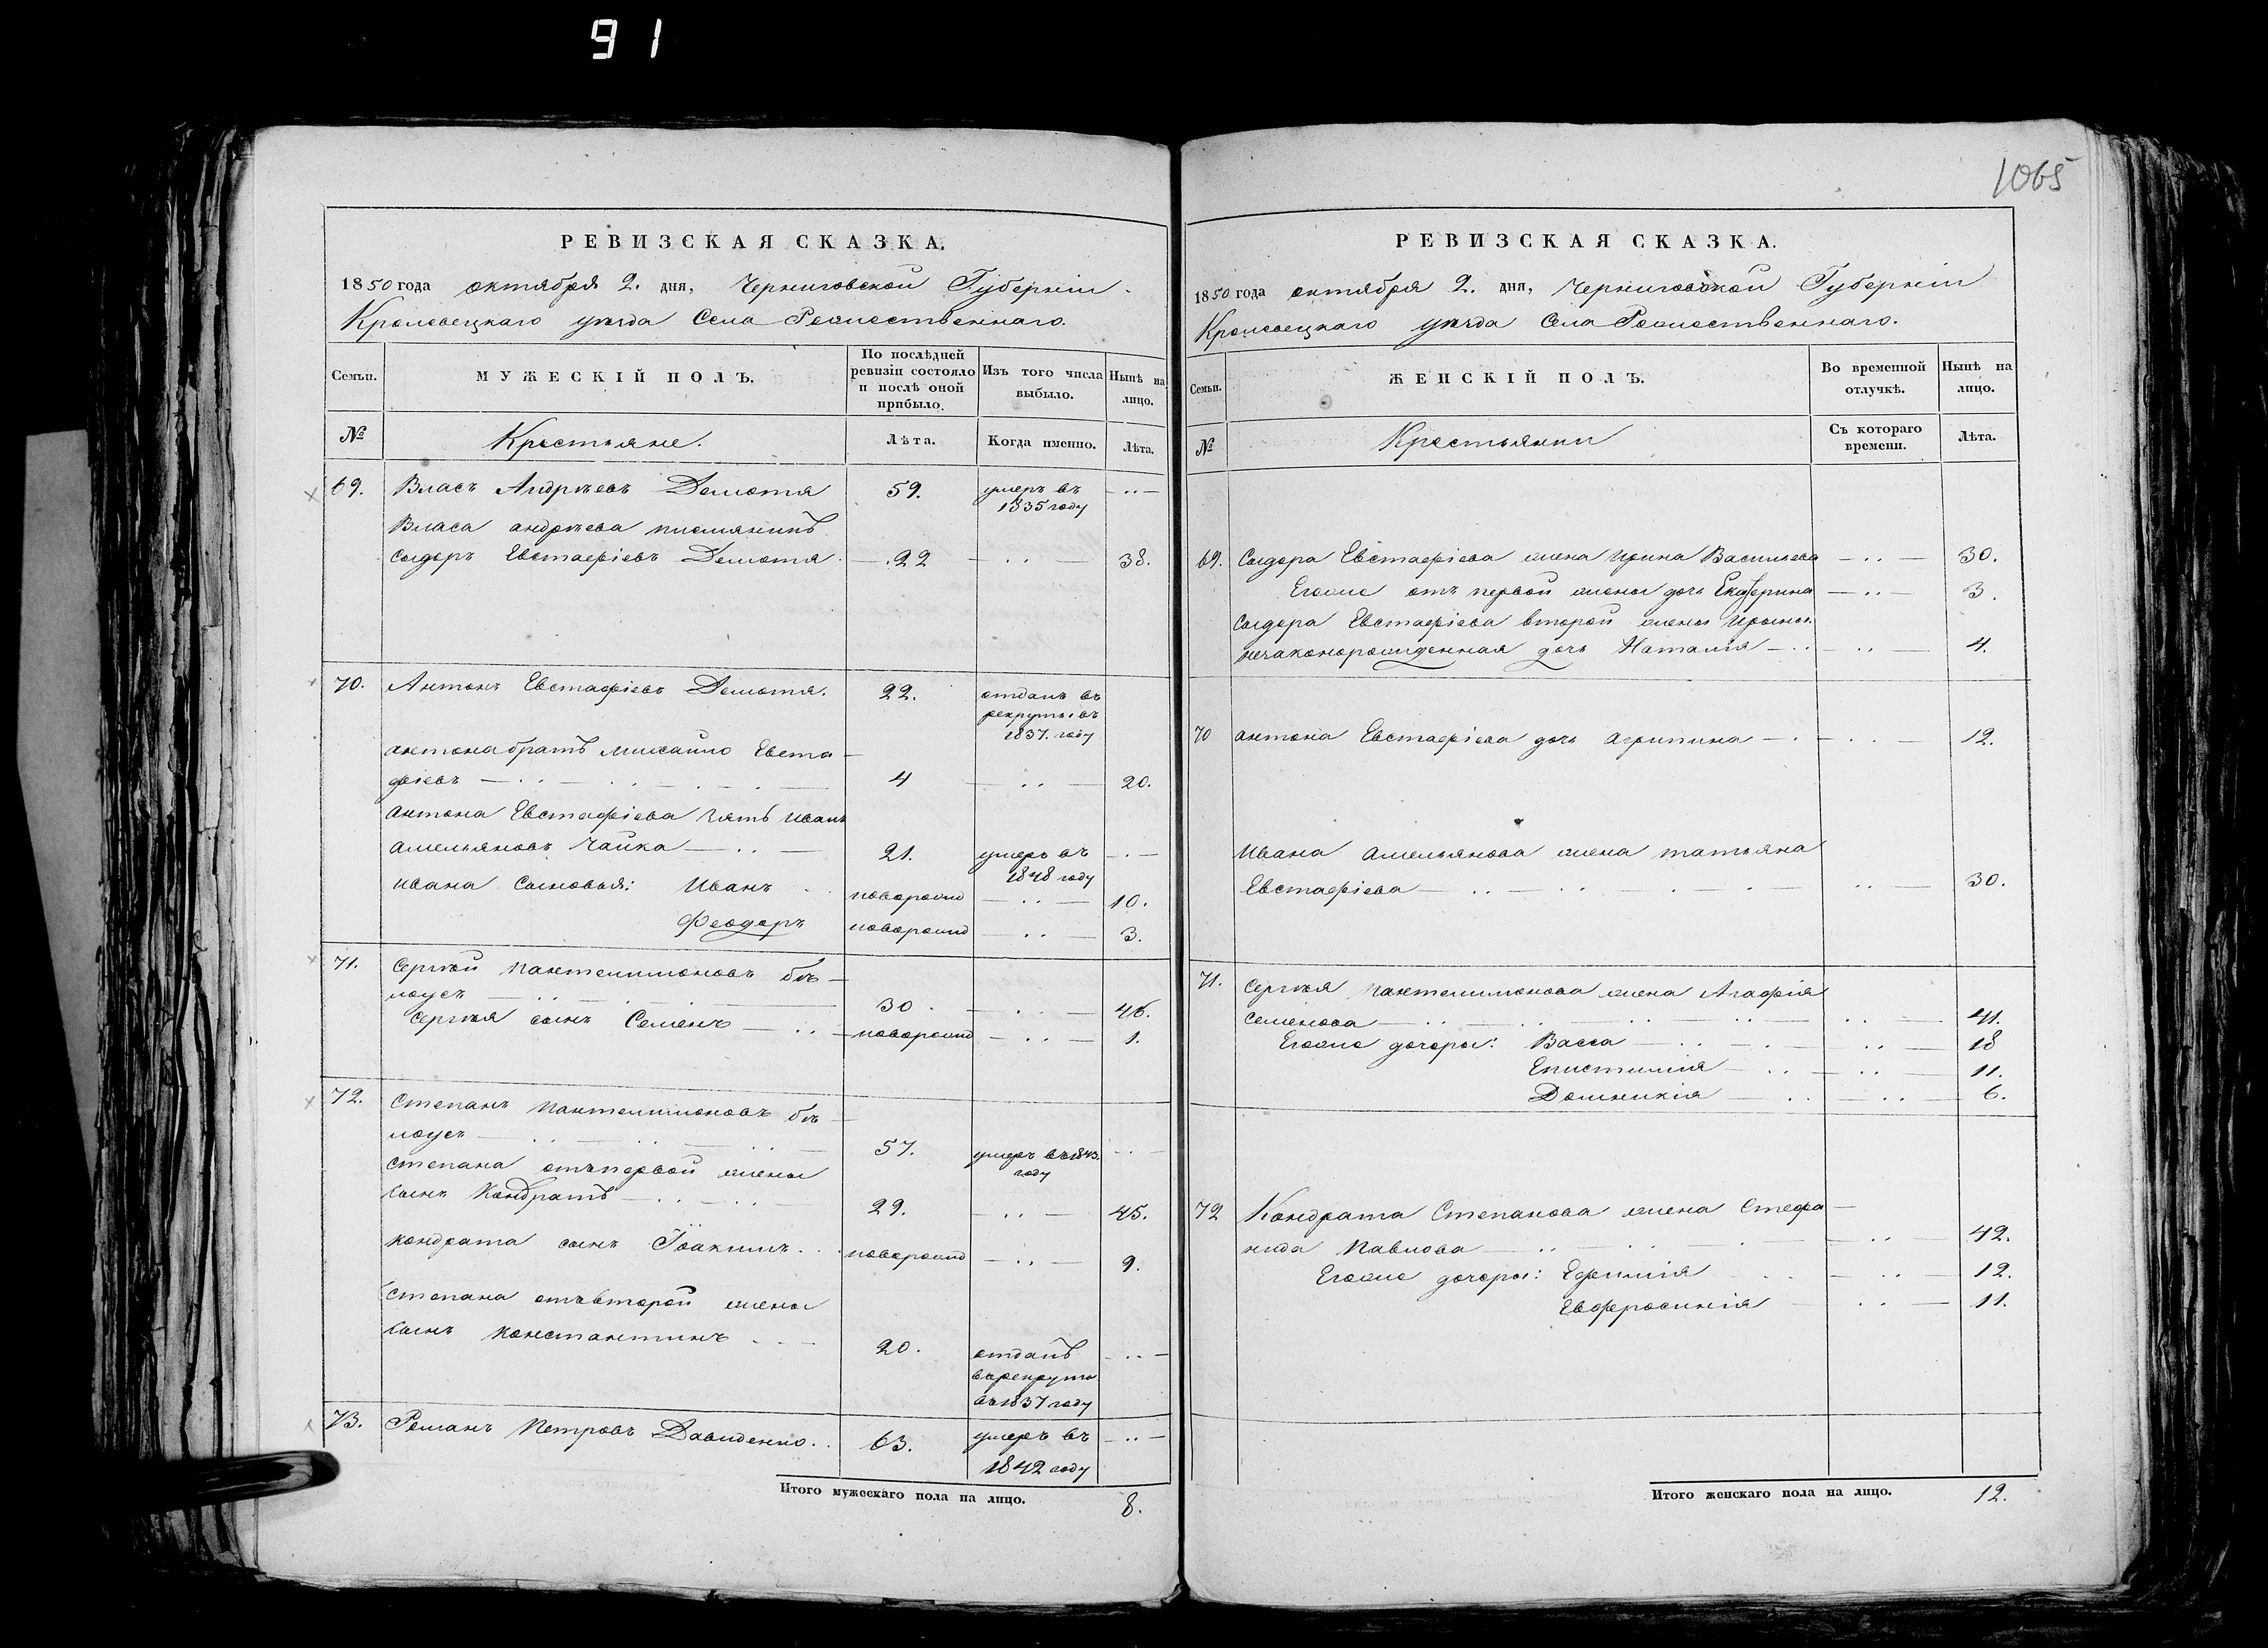 91
1065
РЕВИЗСКАЯ СКАЗКА.
1850 года октября 2. дня, Черниговской Губерніи
Кролевецкаго уѣзда Села Рожественнаго.
Семьи.
МУЖЕСКІЙ ПОЛЪ.
По послѣдней ревизіи состояло и послѣ оной прибыло.
Изъ того числа выбыло.
Нынѣ на лицо.
№
Крестьяне.
Лѣта.
Когда именно.
Лѣта.
69. Власъ Андрѣевъ Демотя 59. умеръ въ 1835 году
Власа андрѣева племянникъ
Сыдоръ Евстафіевъ Демотя 22 38.
70. Антонъ Евстафіевъ Демотя. 22. отданъ въ рекруты въ 1837. году
антона братъ михайло Евста-
фіевъ 4 20.
Антона Евстафіева зять иванъ
амельяновъ Чайка 21. умеръ въ 1848 году
ивана сыновья: Иванъ новорожд 10.
Феодоръ новорожд 3.
71. Сергѣй пантелимоновъ бѣ-
лоусъ 30. 46.
Сергѣя сынъ Семенъ новорожд 1.
72. Степанъ пантелимоновъ бѣ-
лоусъ 57. умеръ въ 1843. году
Степана отъ первой жены
сынъ Кондратъ 29. 45.
кондрата сынъ Іоакимъ новорожд 9.
Степана отъ второй жены
сынъ константинъ 20. отданъ в рекруты въ 1837 году
73. Романъ петровъ Давиденко. 63. умеръ въ 1842 году
Итого мужескаго пола на лицо. 8.
РЕВИЗСКАЯ СКАЗКА.
1850 года октября 2. дня, Черниговской Губерніи
Кролевецкаго уѣзда Села Рожественнаго.
Семьи.
ЖЕНСКІЙ ПОЛЪ.
Во временной отлучкѣ.
Нынѣ на лицо.
№
Крестьянки
Съ котораго времени.
Лѣта.
69. Сыдора Евстафіева жена ирина Васильева 30.
Егоже отъ первой жены дочь Екатерина 3.
Сыдора Евстафіева второй жены Ирины
незаконорожденная дочь Наталія 4.
70 антона Евстафіева дочь агрипина 12.
ивана амельянова жена татьяна
Евстафіева 30.
71. Сергѣя пантелимонова жена Агафія
Семенова 41.
Егоже дочеры: Васса 18
Епистимія 11.
Домникія 6.
72 Кондрата Степанова жена Стефа-
нида павлова 42.
Егоже дочеры: Ефимія 12.
Евфросинія 11.
Итого женскаго пола на лицо. 12.